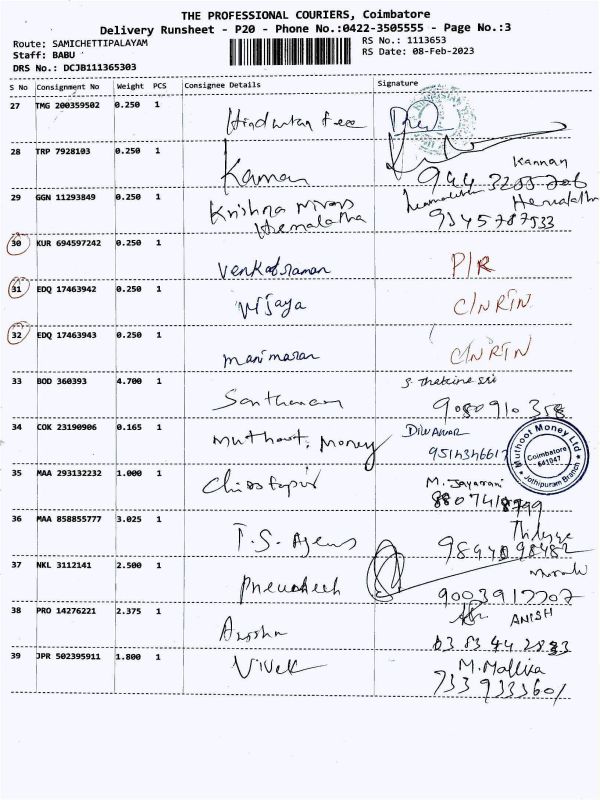 THE PROFESSIONAL COURIERS, Coimbatore
Delivery Runsheet - P20 - Phone No.:0422-3505555 - Page No.:3
Route: SAMICHETTIPALAYAM
RS No.: 1113653
Staff: BABU
RS Date: 08-Feb-2023
DRS No.: DCJB111365303
S No Consignment No Weight PCS Consignee Details Signature
27 TMG 200359502 0.250 1
Hindustan
28 TRP 7928103 0.250 1
Kannan Kannan
29 GGN 11293849 0.250 1
Krishna Hemalatha
Hemalatha 9345787533
30 KUR 694597242 0.250 1
Venkatraman P/R
31 EDQ 17463942 0.250 1
Vijaya C/NRTN
32 EDQ 17463943 0.250 1
manimaran C/NRTN
33 BOD 360393 4.700 1
9080910358
34 COK 23190906 0.165 1
Muthoot Money
Muthoot Money Ltd
Coimbatore
641047
Jothipuram Branch
35 MAA 293132232 1.000 1
M. Jayarani
36 MAA 858855777 3.025 1
T.S. 
37 NKL 3112141 2.500 1
38 PRO 14276221 2.375 1
ANISH
39 JPR 502395911 1.800 1
Vivek M. Mallika
7339333601